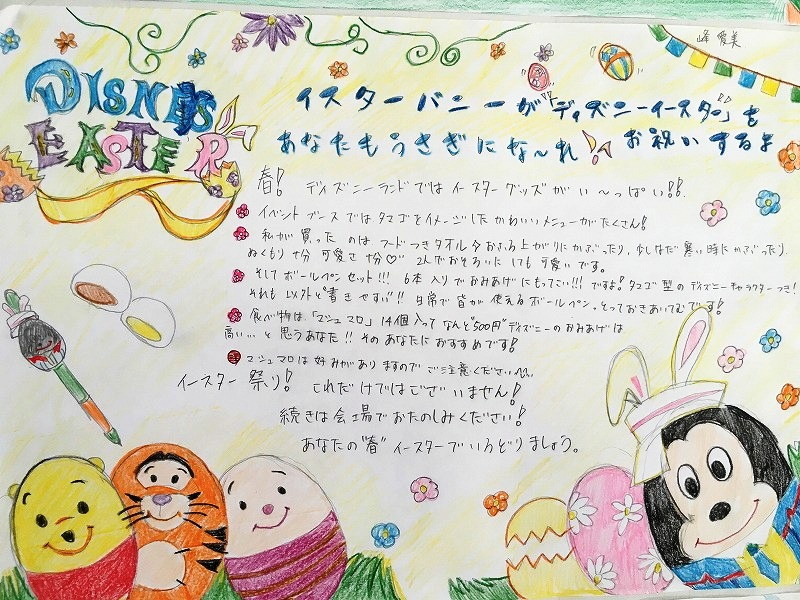 峰 愛美
DISNEY
EASTER
イースターバニーが「ディズニーイースター」も
あなたもうさぎにな〜れ!! お祝いするよ
春! ディズニーランドではイースターグッズがい〜っぱい!!
イベントブースではタマゴをイメージしたかわいいメニューがたくさん!
私が買ったのはフードつきタオル
ぬくもり十分 可愛さ十分♡ 2人でおそろいにしても可愛いです。
そしてボールペンセット!!! 6本入りでおみあげにもってこい!!! ですよ! タマゴ型のディズニーキャラクターつき!
それも以外と"書きやすい"!! 日常で皆が使えるボールペン。とっておきあいてむです!
食べ物は「マシュマロ」14個入ってなんと"500円" ディズニーのおみあげは
高い…と思うあなた!! そのあなたにおすすめです!
マシュマロは好みがありますのでご注意ください
イースター祭り! これだけではございません!
続きは会場でおたのしみください!
あなたの"春"イースターでいろどりましょう。